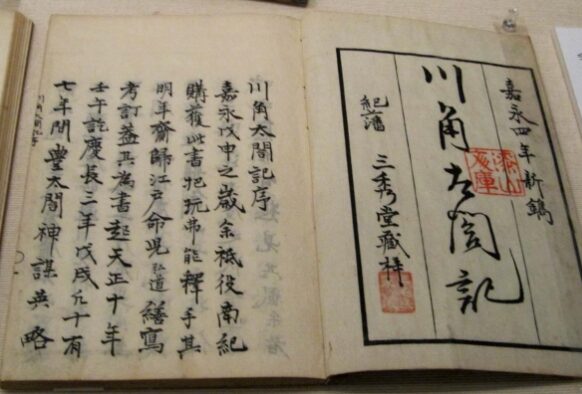 嘉永四年新鐫
川角太閤記
紀藩 三秀堂藏梓
川角太閤記序
嘉永戊申之歳余祗役南紀
購獲此書把玩弗能釋手其
明年齎歸江戸命児弘道繕寫
考訂蓋其為書起天正十年
壬午訖慶長三年戊戌凡十有
七年間豊太閤神謀英略